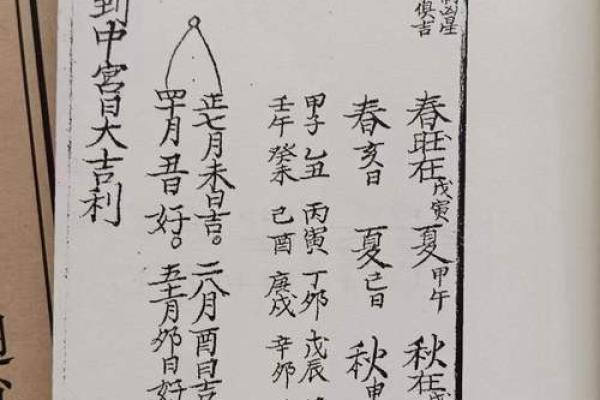 凶星
俱吉
春旺在戊寅 夏甲午 秋在戊
春亥日 夏巳日 秋申
甲子 乙丑 丙寅 丁卯 戊辰
壬午 癸未 己酉 庚戌 辛卯
正七月未日吉。二八月酉日吉
四十月丑日好。五十一月卯日好
到中宮日大吉利